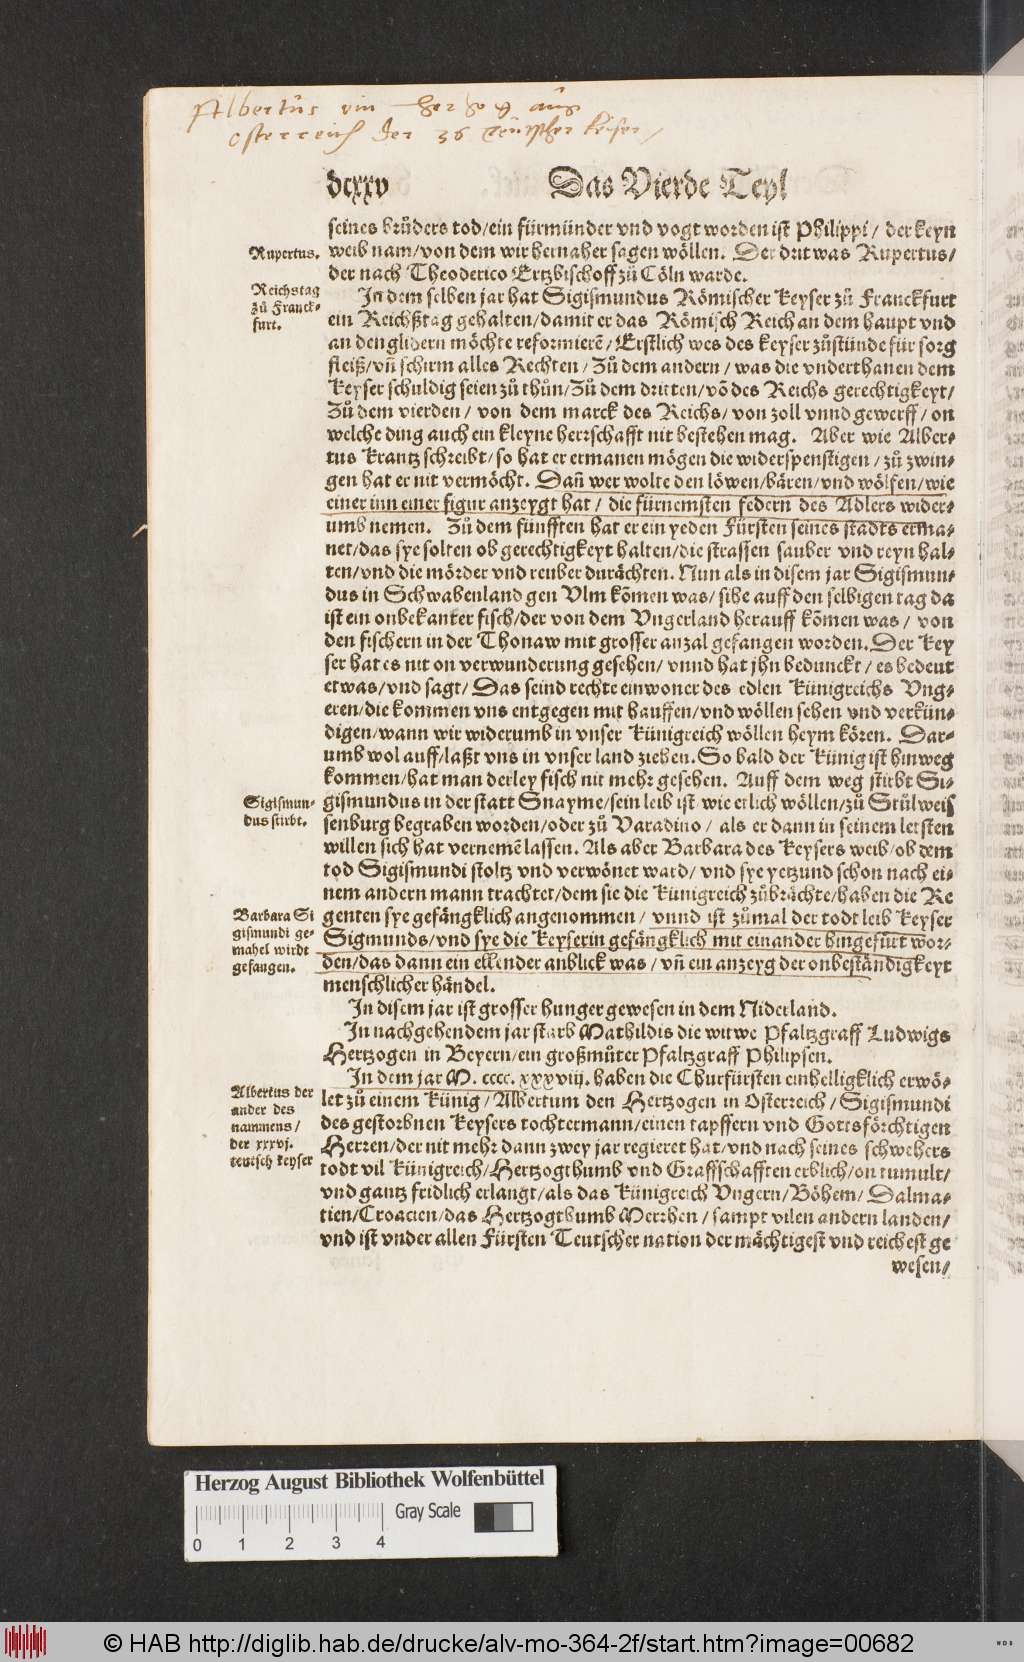 Albertus ein Herzog aus
Osterreich der 36 teutscher keiser/
dcxxv Das Vierde Teyl
seines brůders tod/ein fürmünder vnd vogt worden ist Philippi/ der keyn
Rupertus. weib nam/von dem wir hernaher sagen wöllen. Der drit was Rupertus/
der nach Theoderico Ertzbischoff zů Cöln warde.
Reichstag zů Franck- furt.
In dem selben jar hat Sigismundus Römischer Keyser zů Franckfurt
ein Reichßtag gehalten/damit er das Römisch Reich an dem haupt vnd
an den glidern möchte reformierē/ Erstlich wes des keyser zůstünde für sorg
fleiß/vñ schirm alles Rechten/ Zů dem andern/ was die vnderthanen dem
Keyser schuldig seien zů thůn/Zů dem dritten/võ des Reichs gerechtigkeyt/
Zů dem vierden/ von dem marck des Reichs/von zoll vnnd gewerff/ on
welche ding auch ein kleyne herrschafft nit bestehen mag. Aber wie Alber-
tus Krantz schreibt/so hat er ermanen mögen die widerspenstigen/zů zwin-
gen hat er nit vermöcht. Dañ wer wolte den löwen/bären/vnd wölfen/wie
einer inn einer figur anzeygt hat/ die fürnemsten federn des Adlers wider-
umb nemen. Zů dem fünfften hat er ein yeden Fürsten seines stadts erma-
net/das sye solten ob gerechtigkeyt halten/die strassen sauber vnd reyn hal-
ten/vnd die mörder vnd reuber durächten. Nun als in disem jar Sigismun-
dus in Schwabenland gen Vlm kõmen was/ sihe auff den selbigen tag da
ist ein onbekanter fisch/der von dem Vngerland herauff kõmen was/ von
den fischern in der Thonaw mit grosser anzal gefangen worden. Der Key
ser hat es nit on verwunderung gesehen/ vnnd hat jhn bedunckt/ es bedeut
etwas/vnd sagt/ Das seind rechte einwoner des edlen Künigreichs Vng-
eren/die kommen vns entgegen mit hauffen/vnd wöllen sehen vnd verkün-
digen/wann wir widerumb in vnser Künigreich wöllen heym kören. Dar-
umb wol auff/laßt vns in vnser land ziehen. So bald der Künig ist hinweg
kommen/hat man derley fisch nit mehr gesehen. Auff dem weg stirbt Si-
Sigismun- dus stirbt.
gismundus in der statt Snayme/sein leib ist wie etlich wöllen/zů Stůlweis
senburg begraben worden/oder zů Varadino/ als er dann in seinem letsten
willen sich hat vernemē lassen. Als aber Barbara des Keysers weib/ob dem
tod Sigismundi stoltz vnd verwönet ward/ vnd sye yetzund schon nach ei-
nem andern mann trachtet/dem sie die Künigreich zůbrächte/haben die Re
Barbara Si gismundi ge- mahel wirdt gefangen.
genten sye gefängklich angenommen/ vnnd ist zůmal der todt leib Keyser
Sigmunds/vnd sye die Keyserin gefängklich mit einander hingefürt wor-
den/das dann ein ellender anblick was/ vñ ein anzeyg der onbeständigkeyt
menschlicher händel.
In disem jar ist grosser hunger gewesen in dem Niderland.
In nachgehendem jar starb Mathildis die witwe Pfaltzgraff Ludwigs
Hertzogen in Beyern/ein großmůter Pfaltzgraff Philipsen.
In dem jar M. cccc. xxxviij. haben die Churfürsten einhelligklich erwö-
Albertus der ander des nammens/ der xxxvj. teutsch keyser
let zů einem Künig/ Albertum den Hertzogen in Osterreich/ Sigismundi
des gestorbnen Keysers tochtermann/einen tapffern vnd Gottsförchtigen
Herren/der nit mehr dann zwey jar regieret hat/vnd nach seines schwehers
todt vil Künigreich/Hertzogthumb vnd Graffschafften erblich/on tumult/
vnd gantz fridlich erlangt/als das Künigreich Vngern/Böhem/ Dalma-
tien/Croacien/das Hertzogthumb Merrhen/ sampt vilen andern landen/
vnd ist vnder allen Fürsten Teutscher nation der mächtigest vnd reichest ge
wesen/
Herzog August Bibliothek Wolfenbüttel
0 1 2 3 4 Gray Scale
© HAB http://diglib.hab.de/drucke/alv-mo-364-2f/start.htm?image=00682